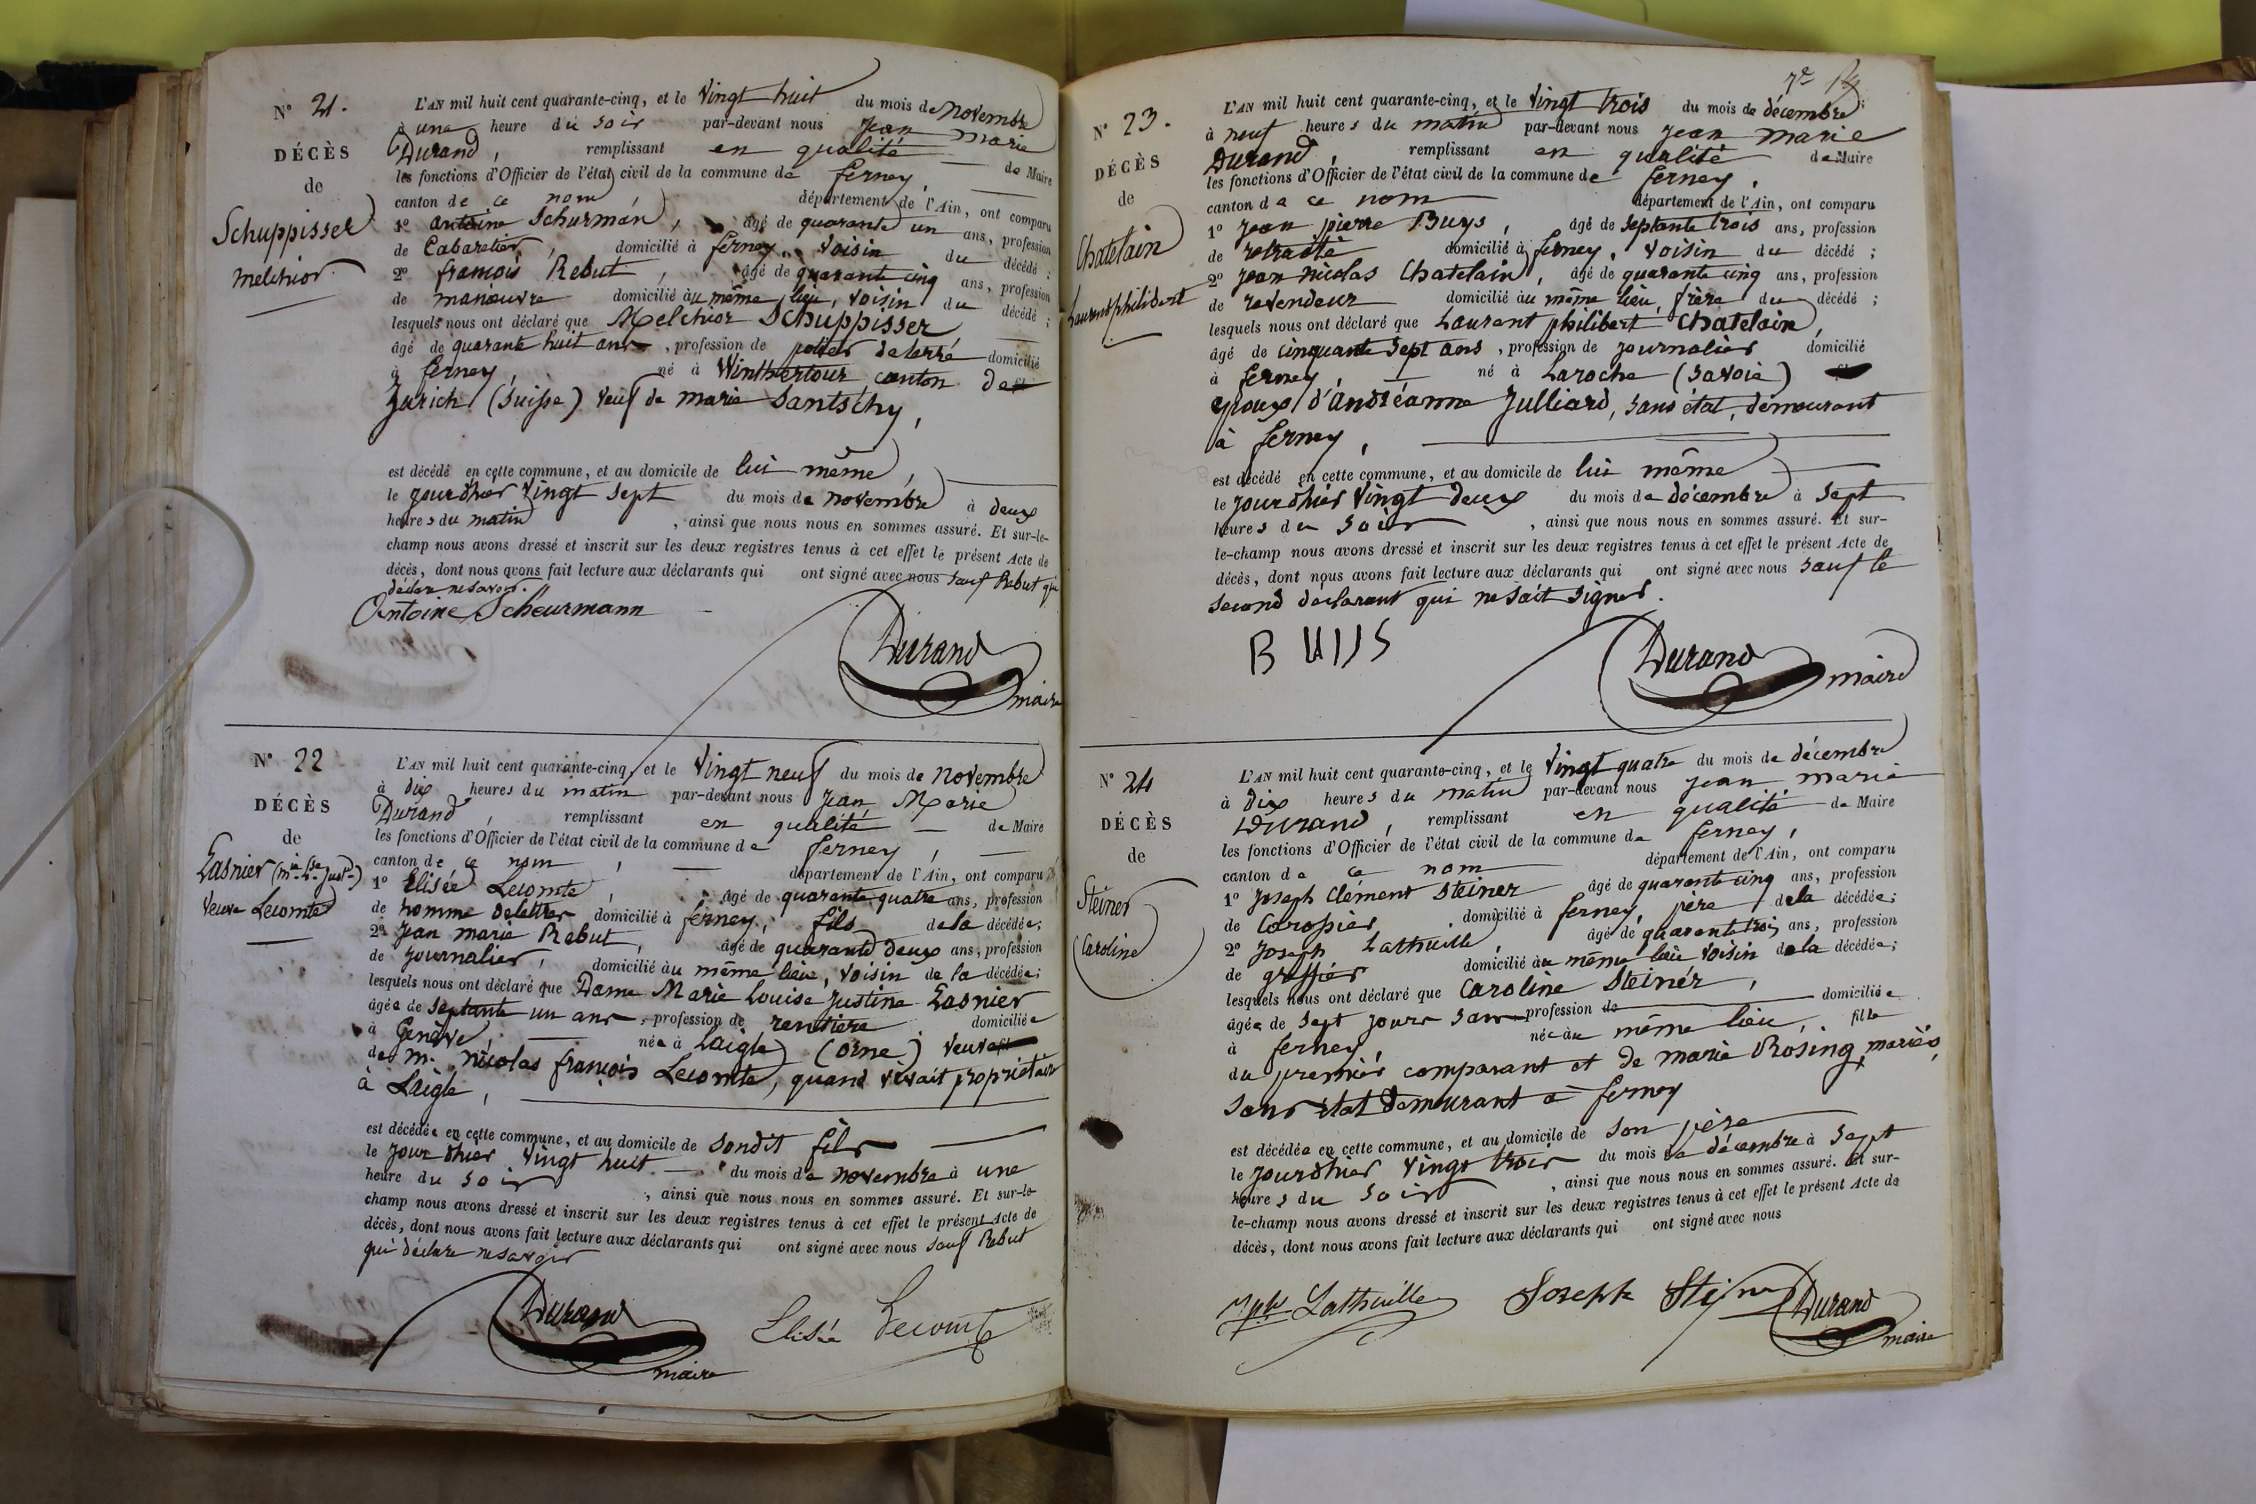 N° 21.
DÉCÈS
de
Schuppisser
melchior
L'AN mil huit cent quarante-cinq, et le vingt huit du mois de novembre
à une heure du soir par-devant nous jean marie
Durand, remplissant en qualité de Maire
les fonctions d'Officier de l'état civil de la commune de ferney,
canton de ce nom département de l'Ain, ont comparu
1° antoine Schurman, âgé de quarante un ans, profession
de Cabaretier, domicilié à ferney, voisin du décédé;
2° françois Rebut, âgé de quarante cinq ans, profession
de manœuvre domicilié au même lieu, voisin du décédé;
lesquels nous ont déclaré que Melchior Schuppisser
âgé de quarante huit ans, profession de potier de terre domicilié
à ferney, né à Winthertour canton de
Zurich (Suisse) veuf de marie Santschy,
est décédé en cette commune, et au domicile de lui même,
le jour d'hier vingt sept du mois de novembre à deux
heures du matin, ainsi que nous nous en sommes assuré. Et sur-le-
champ nous avons dressé et inscrit sur les deux registres tenus à cet effet le présent Acte de
décès, dont nous avons fait lecture aux déclarants qui ont signé avec nous sauf Rebut qui
déclare ne savoir.
Antoine Scheurmann
Durand
maire
N° 22
DÉCÈS
de
Lasnier (mie Lse Justne)
veuve Lecomte
L'AN mil huit cent quarante-cinq, et le vingt neuf du mois de novembre
à dix heures du matin par-devant nous Jean Marie
Durand, remplissant en qualité de Maire
les fonctions d'Officier de l'état civil de la commune de ferney,
canton de ce nom, département de l'Ain, ont comparu
1° Elisée Lecomte, âgé de quarante quatre ans, profession
de homme de lettres domicilié à ferney, fils de la décédée;
2° Jean marie Rebut, âgé de quarante deux ans, profession
de journalier, domicilié au même lieu, voisin de la décédée;
lesquels nous ont déclaré que Dame Marie Louise Justine Lasnier
âgée de septante un ans, profession de rentiere domiciliée
à Genève, née à Laigle (orne) veuve
de m. nicolas françois Lecomte, quand vivait propriétaire
à Laigle,
est décédée en cette commune, et au domicile de sondit fils
le jour d'hier vingt huit du mois de novembre à une
heure du soir, ainsi que nous nous en sommes assuré. Et sur-le-
champ nous avons dressé et inscrit sur les deux registres tenus à cet effet le présent Acte de
décès, dont nous avons fait lecture aux déclarants qui ont signé avec nous sauf Rebut
qui déclare ne savoir
Durand
maire
Elisée Lecomte
7e
N° 23.
DÉCÈS
de
Chatelain
Laurent philibert
L'AN mil huit cent quarante-cinq, et le vingt trois du mois de décembre
à neuf heures du matin par-devant nous jean marie
Durand, remplissant en qualité de Maire
les fonctions d'Officier de l'état civil de la commune de ferney,
canton de ce nom département de l'Ain, ont comparu
1° jean pierre Buys, âgé de septante trois ans, profession
de retraité domicilié à ferney, voisin du décédé;
2° jean nicolas Chatelain, âgé de quarante cinq ans, profession
de revendeur domicilié au même lieu, frère du décédé;
lesquels nous ont déclaré que Laurent philibert Chatelain,
âgé de cinquante sept ans, profession de journalier domicilié
à ferney, né à Laroche (Savoie)
époux d'andréanne Julliard, sans état, demeurant
à ferney,
est décédé en cette commune, et au domicile de lui même
le jour d'hier vingt deux du mois de décembre à sept
heures du soir, ainsi que nous nous en sommes assuré. Et sur-
le-champ nous avons dressé et inscrit sur les deux registres tenus à cet effet le présent Acte de
décès, dont nous avons fait lecture aux déclarants qui ont signé avec nous sauf le
second déclarant qui ne sait signer.
Durand
maire
N° 24
DÉCÈS
de
Steiner
Caroline
L'AN mil huit cent quarante-cinq, et le vingt quatre du mois de décembre
à dix heures du matin par-devant nous jean marie
Durand, remplissant en qualité de Maire
les fonctions d'Officier de l'état civil de la commune de ferney,
canton de ce nom département de l'Ain, ont comparu
1° Joseph Clément Steiner âgé de quarante cinq ans, profession
de Carossier, domicilié à ferney, père de la décédée;
2° Joseph Lathuille, âgé de quarante trois ans, profession
de greffier domicilié au même lieu voisin de la décédée;
lesquels nous ont déclaré que Caroline Steiner,
âgée de sept jours sans profession de domiciliée
à ferney, née au même lieu, fille
du premier comparant et de marie Rosing, mariés,
sans état demeurant à ferney
est décédée en cette commune, et au domicile de son père
le jour d'hier vingt trois du mois de décembre à sept
heures du soir, ainsi que nous nous en sommes assuré. Et sur-
le-champ nous avons dressé et inscrit sur les deux registres tenus à cet effet le présent Acte de
décès, dont nous avons fait lecture aux déclarants qui ont signé avec nous
Jph Lathuille Joseph Steiner Durand
maire